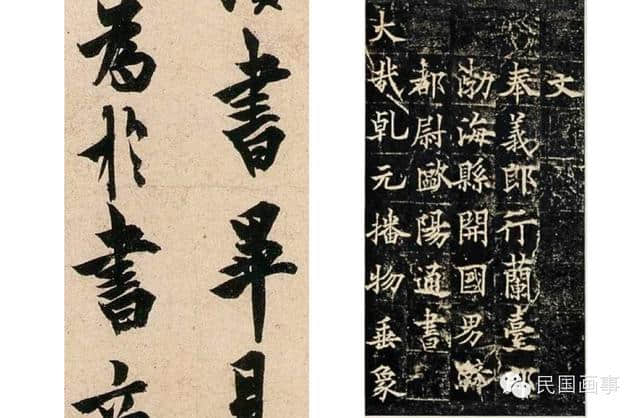 書畢
為於書
文
奉義郎行蘭臺郎
渤海縣開國男騎
都尉歐陽通書
大哉乾元播物垂象
民国画事